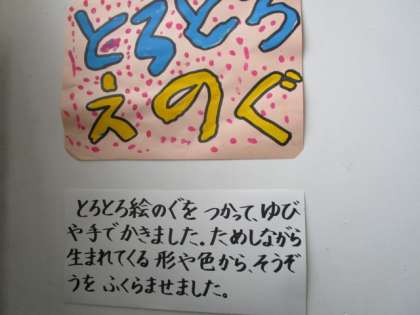 とろとろ
えのぐ
とろとろ絵のぐを つかって、ゆび
や手でかきました。ためしながら
生まれてくる 形や色から、そうぞ
うを ふくらませました。